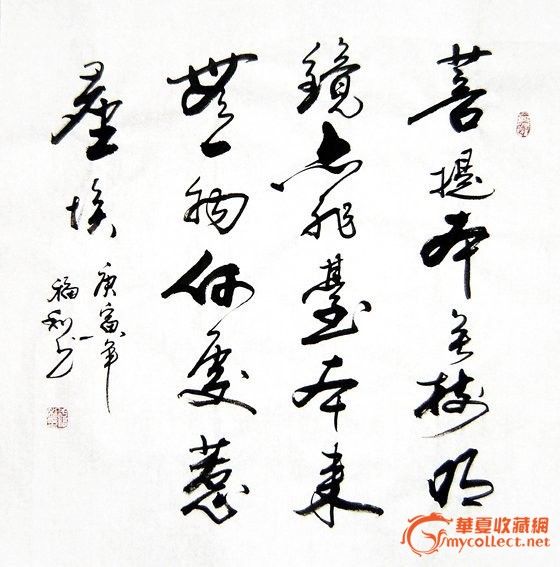 菩提本无樹明
鏡亦非臺本来
無一物何處惹
塵埃
庚寅年
福利书
華夏收藏網
mycollect.net